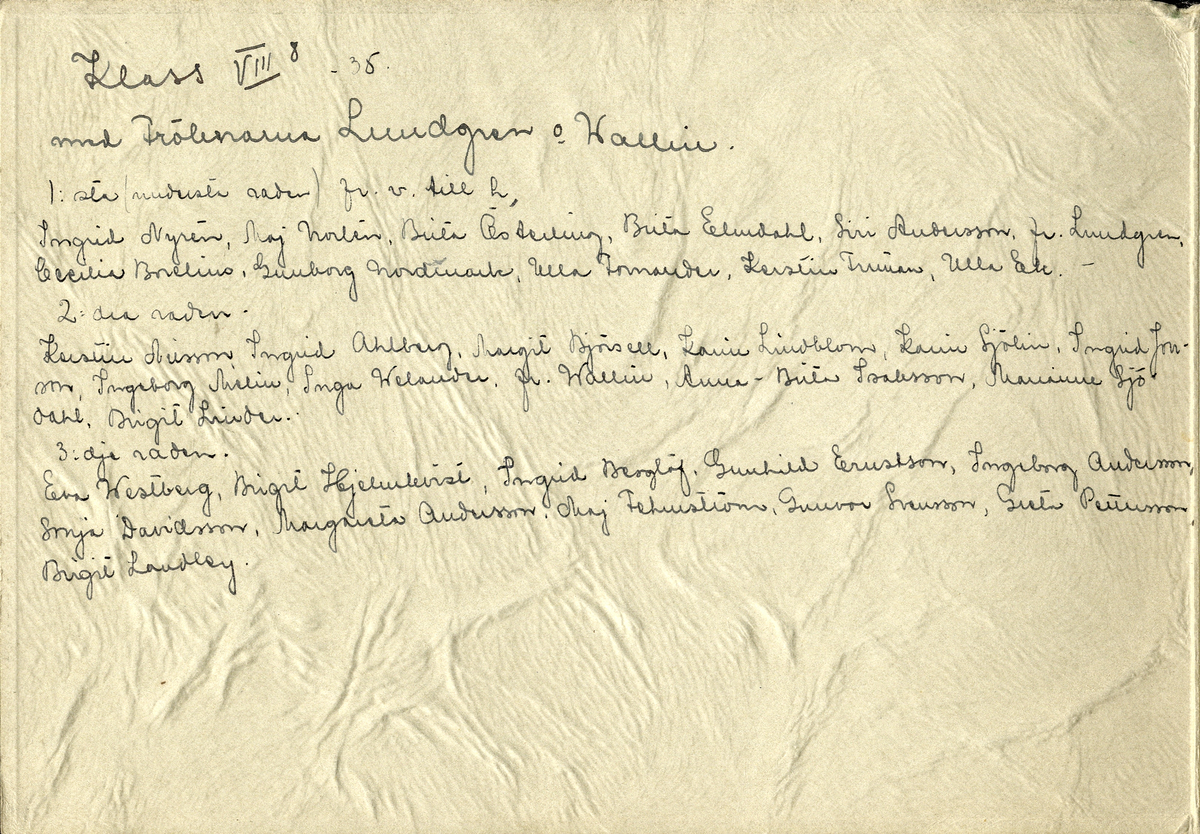 Klass VIII 8 - 35.
med Fröknarna Lundgren o Wallin.
1:sta (nedersta raden) fr. v. till h,
Ingrid Nyrén, Maj Norlén, Brita Österling, Brita Elmdahl, Siri Andersson, fr. Lundgren,
Cecilia Borelius, Gunborg Nordmark, Ulla Tornander, Kerstin Truman, Ulla Ek. -
2:dra raden.
Kerstin Nilsson, Ingrid Ahlberg, Margit Björsell, Karin Lindblom, Karin Sjölin, Ingrid Jon-
son, Ingeborg Melin, Inga Welander, fr. Wallin, Anna-Brita Isaksson, Marianne Sjö-
dahl, Birgit Linder.
3:dje raden.
Eva Westberg, Birgit Hjelmkvist, Ingrid Berglöf, Gunhild Ernstson, Ingeborg Andersson,
Sonja Davidsson, Margareta Andersson, Maj Fehrnström, Gunvor Svensson, Greta Pettersson,
Birgit Landby.